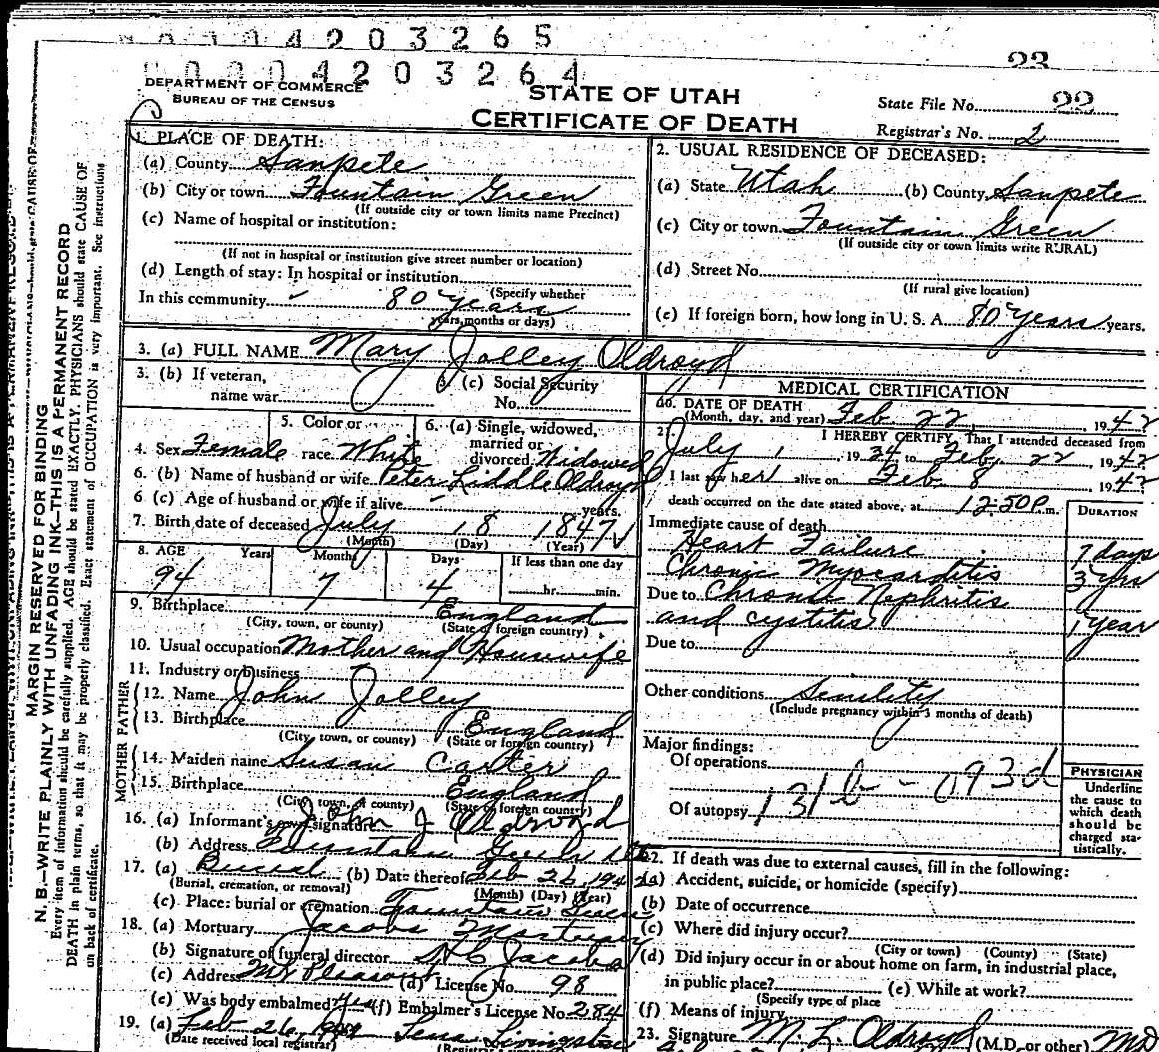 4203265
4203264
23
DEPARTMENT OF COMMERCE
BUREAU OF THE CENSUS
STATE OF UTAH
CERTIFICATE OF DEATH
State File No. 22
Registrar's No. 2
MARGIN RESERVED FOR BINDING
N. B.—WRITE PLAINLY WITH UNFADING INK—THIS IS A PERMANENT RECORD
Every item of information should be carefully supplied. AGE should be stated EXACTLY. PHYSICIANS should state CAUSE OF
DEATH in plain terms, so that it may be properly classified. Exact statement of OCCUPATION is very important. See instructions
on back of certificate.
1. PLACE OF DEATH:
(a) County Sanpete
(b) City or town Fountain Green
(If outside city or town limits name Precinct)
(c) Name of hospital or institution:
(If not in hospital or institution give street number or location)
(d) Length of stay: In hospital or institution
(Specify whether
In this community 80 years
years, months or days)
2. USUAL RESIDENCE OF DECEASED:
(a) State Utah (b) County Sanpete
(c) City or town Fountain Green
(If outside city or town limits write RURAL)
(d) Street No.
(If rural give location)
(e) If foreign born, how long in U. S. A. 80 years years.
3. (a) FULL NAME Mary Jolley Oldroyd
3. (b) If veteran,
name war
3. (c) Social Security
No.
4. Sex Female
5. Color or
race White
6. (a) Single, widowed,
married or
divorced Widowed
6. (b) Name of husband or wife Peter Liddle Oldroyd
6 (c) Age of husband or wife if alive years.
7. Birth date of deceased July 18 1847
(Month) (Day) (Year)
8. AGE Years Months Days If less than one day
94 7 4 hr. min.
9. Birthplace England
(City, town, or county) (State or foreign country)
10. Usual occupation Mother and Housewife
11. Industry or business
FATHER
12. Name John Jolley
13. Birthplace England
(City, town, or county) (State or foreign country)
MOTHER
14. Maiden name Susan Carter
15. Birthplace England
(City, town, or county) (State or foreign country)
16. (a) Informant's own signature John J Oldroyd
(b) Address Fountain Green Utah
17. (a) Burial (b) Date thereof Feb 26, 1942
(Burial, cremation, or removal) (Month) (Day) (Year)
(c) Place: burial or cremation Fountain Green
18. (a) Mortuary Jacobs Mortuary
(b) Signature of funeral director Jacobs
(c) Address Mt Pleasant (d) License No. 98
(e) Was body embalmed? Yes (f) Embalmer's License No. 284
19. (a) Feb 26, Lena Livingston
(Date received local registrar)
MEDICAL CERTIFICATION
20. DATE OF DEATH
(Month, day, and year) Feb 22, 1942
21. I HEREBY CERTIFY, That I attended deceased from
July 1, 1934 to Feb. 22 1942
I last saw her alive on Feb 8 1942
death occurred on the date stated above, at 12:50P. m.
DURATION
Immediate cause of death
Heart Failure 7 days
Chronic Myocarditis 3 yrs
Due to Chronic Nephritis
and cystitis 1 year
Due to
Other conditions Senility
(Include pregnancy within 3 months of death)
Major findings:
Of operations
Of autopsy 131b - 093d
PHYSICIAN
Underline
the cause to
which death
should be
charged sta-
tistically.
22. If death was due to external causes, fill in the following:
(a) Accident, suicide, or homicide (specify)
(b) Date of occurrence
(c) Where did injury occur?
(City or town) (County) (State)
(d) Did injury occur in or about home on farm, in industrial place,
in public place? (e) While at work?
(Specify type of place
(f) Means of injury
23. Signature M. L. Oldroyd (M.D. or other) MD